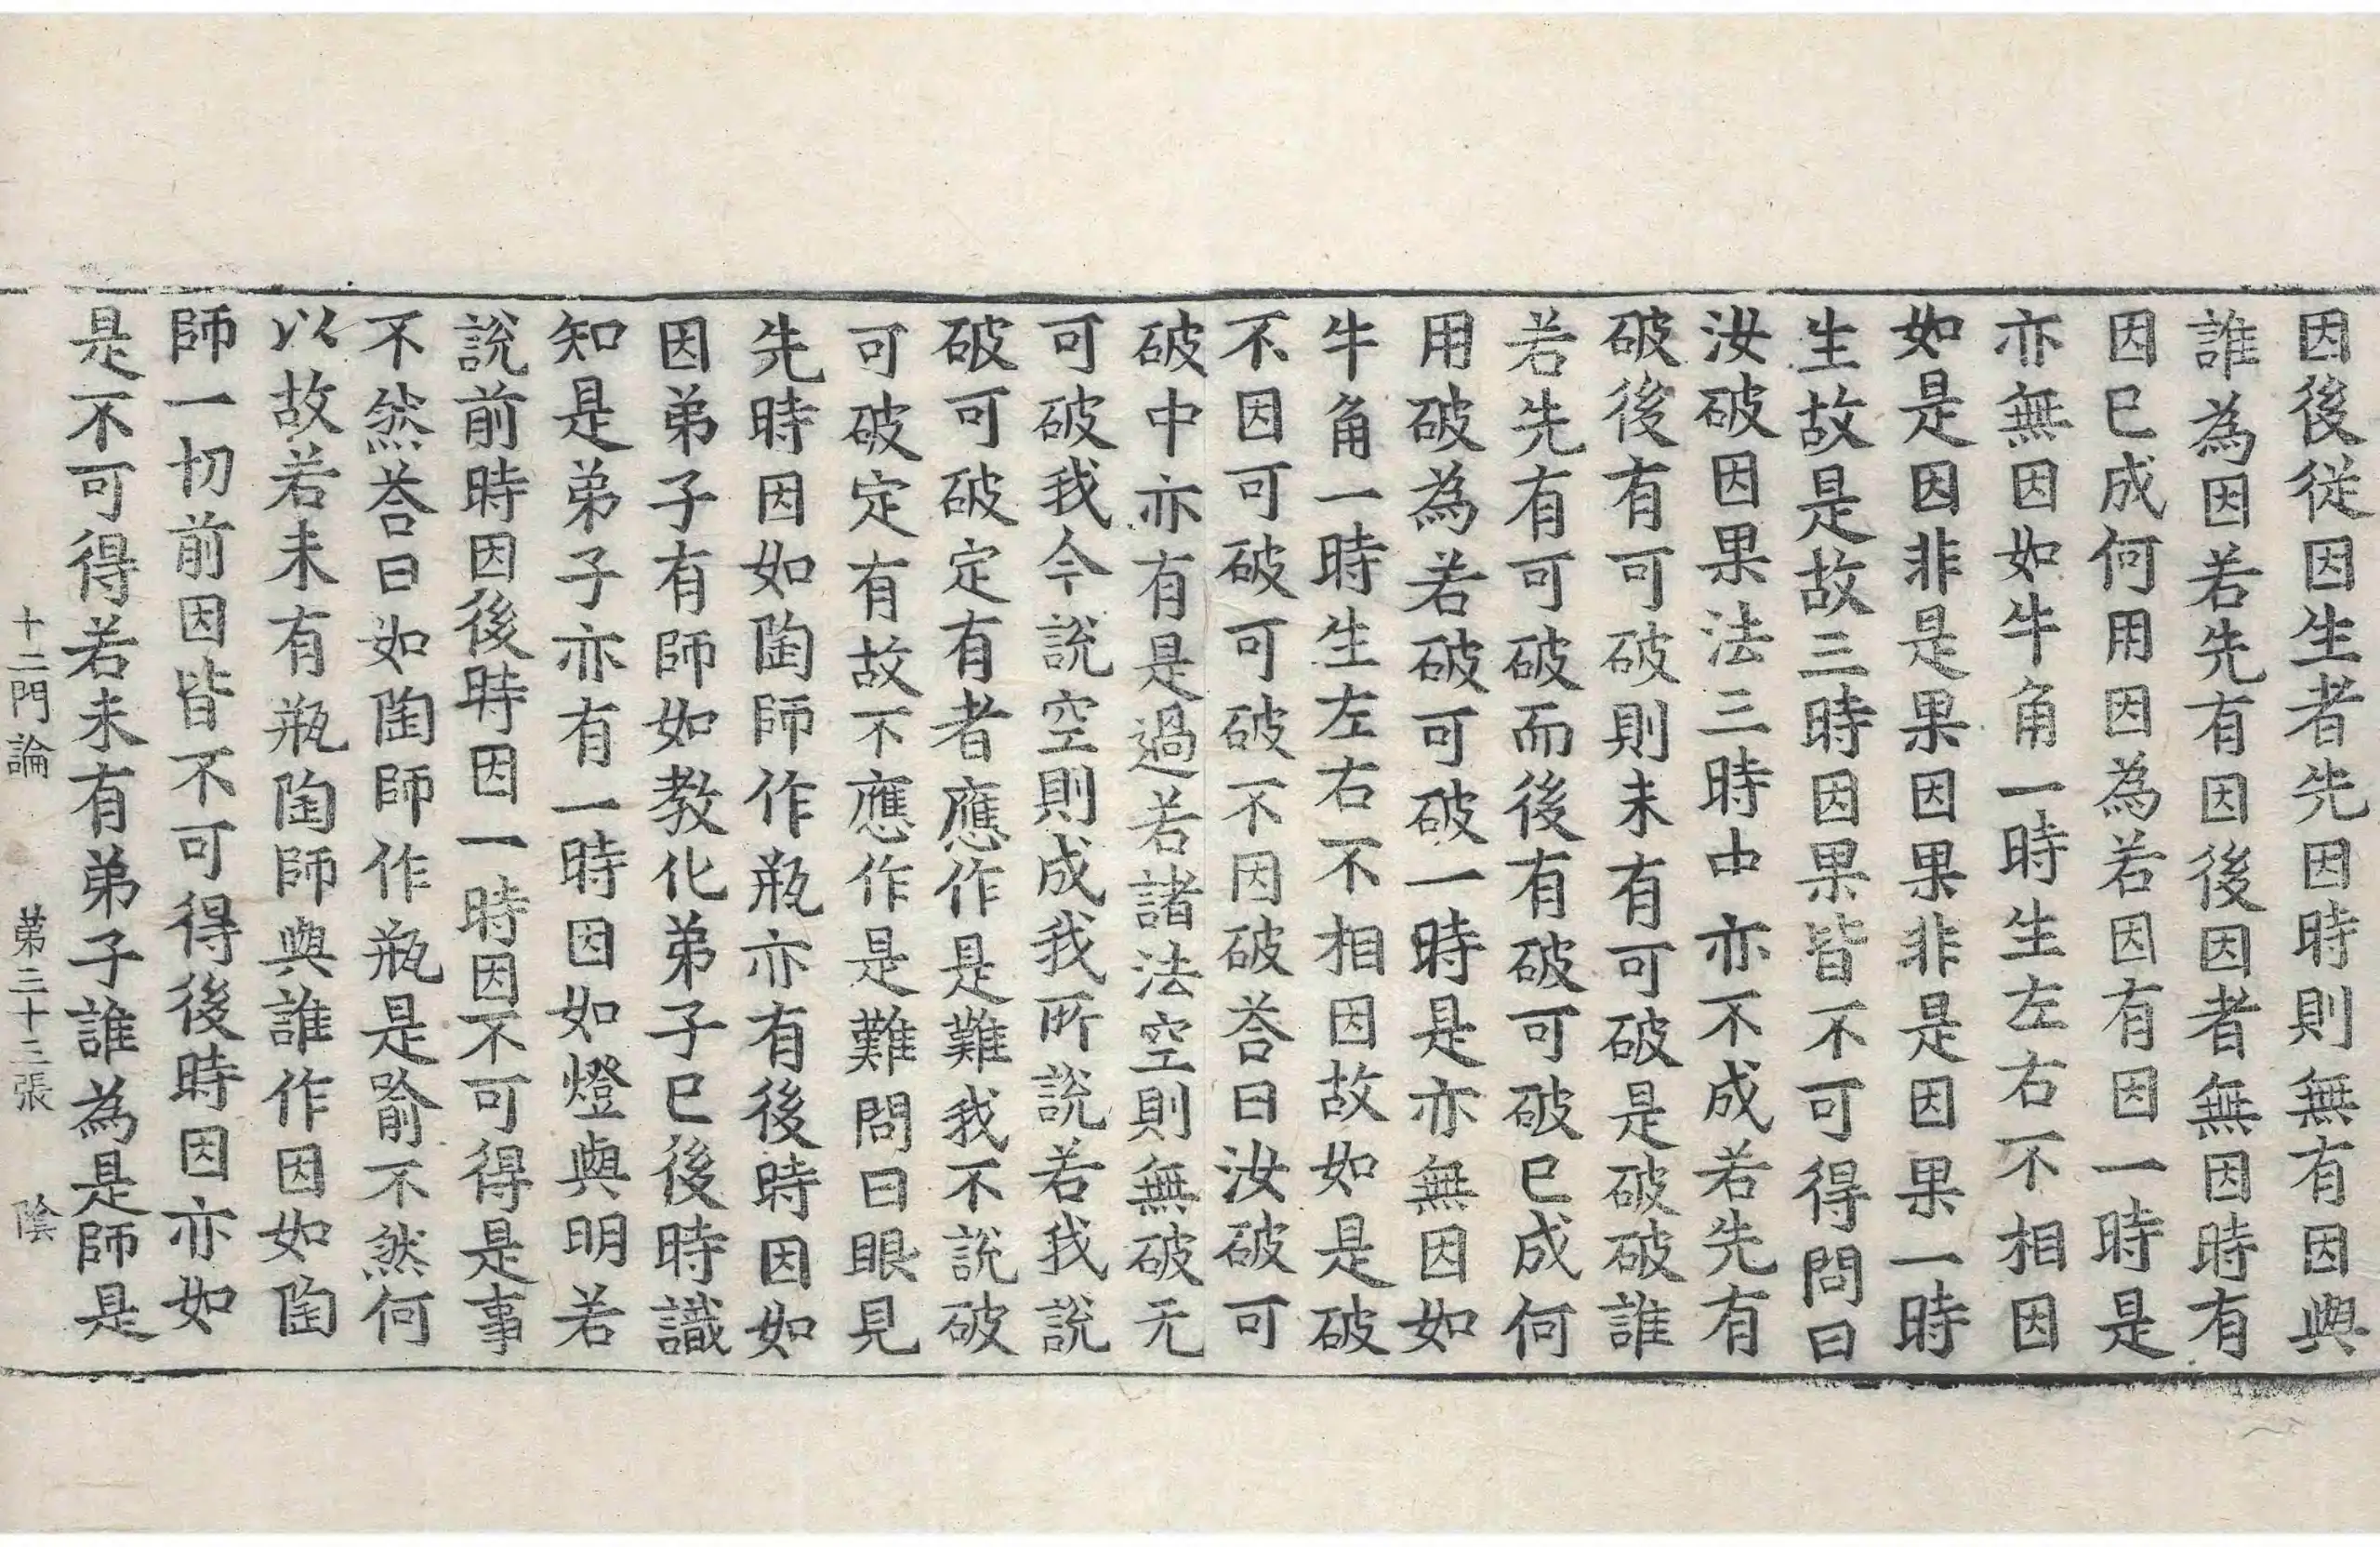 因後從因生者先因時則無有因與
誰為因若先有因後因者無因時有
因已成何用因為若因有因一時是
亦無因如牛角一時生左右不相因
如是因非是果因果非是因果一時
生故是故三時因果皆不可得問曰
汝破因果法三時中亦不成若先有
破後有可破則未有可破是破破誰
若先有可破而後有破可破已成何
用破為若破可破一時是亦無因如
牛角一時生左右不相因故如是破
不因可破可破不因破荅曰汝破可
破中亦有是過若諸法空則無破无
可破我今說空則成我所說若我說
破可破定有者應作是難我不說破
可破定有故不應作是難問曰眼見
先時因如陶師作瓶亦有後時因如
因弟子有師如教化弟子已後時識
知是弟子亦有一時因如燈與明若
說前時因後時因一時因不可得是事
不然荅曰如陶師作瓶是喻不然何
以故若未有瓶陶師與誰作因如陶
師一切前因皆不可得後時因亦如
是不可得若未有弟子誰為是師是
十二門論　第三十三張　陰